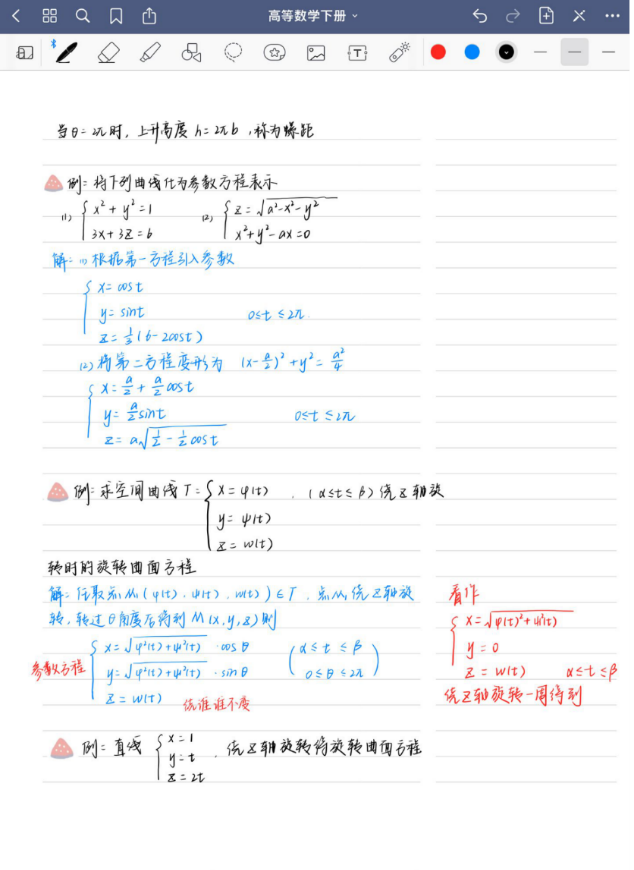 高等数学下册
当θ=2π时，上升高度 h=2πb，称为螺距
例：将下列曲线化为参数方程表示
(1) { x²+y²=1
3x+3z=6
(2) { z=√(a²-x²-y²)
x²+y²-ax=0
解：(1) 根据第一方程引入参数
{ x=cost
y=sint 0≤t≤2π.
z=1/3(6-2cost)
(2) 将第二方程变形为 (x-a/2)²+y²=a²/4
{ x=a/2+a/2cost
y=a/2sint 0≤t≤2π
z=a√(1/2-1/2cost)
例：求空间曲线 T={ x=φ(t) . (α≤t≤β) 绕z轴旋
y=ψ(t)
z=w(t)
转时的旋转曲面方程
解：任取点M₁(φ(t),ψ(t),w(t))∈T，点M₁绕z轴旋
转，转过θ角度后得到M(x,y,z)则
参数方程 { x=√(φ²(t)+ψ²(t)) ·cosθ (α≤t≤β
y=√(φ²(t)+ψ²(t)) ·sinθ 0≤θ≤2π)
z=w(t) 绕谁谁不变
看作
{ x=√(φ(t)²+ψ²(t))
y=0
z=w(t) α≤t≤β
绕z轴旋转一周得到
例：直线 { x=1
y=t ，绕z轴旋转得旋转曲面方程
z=2t